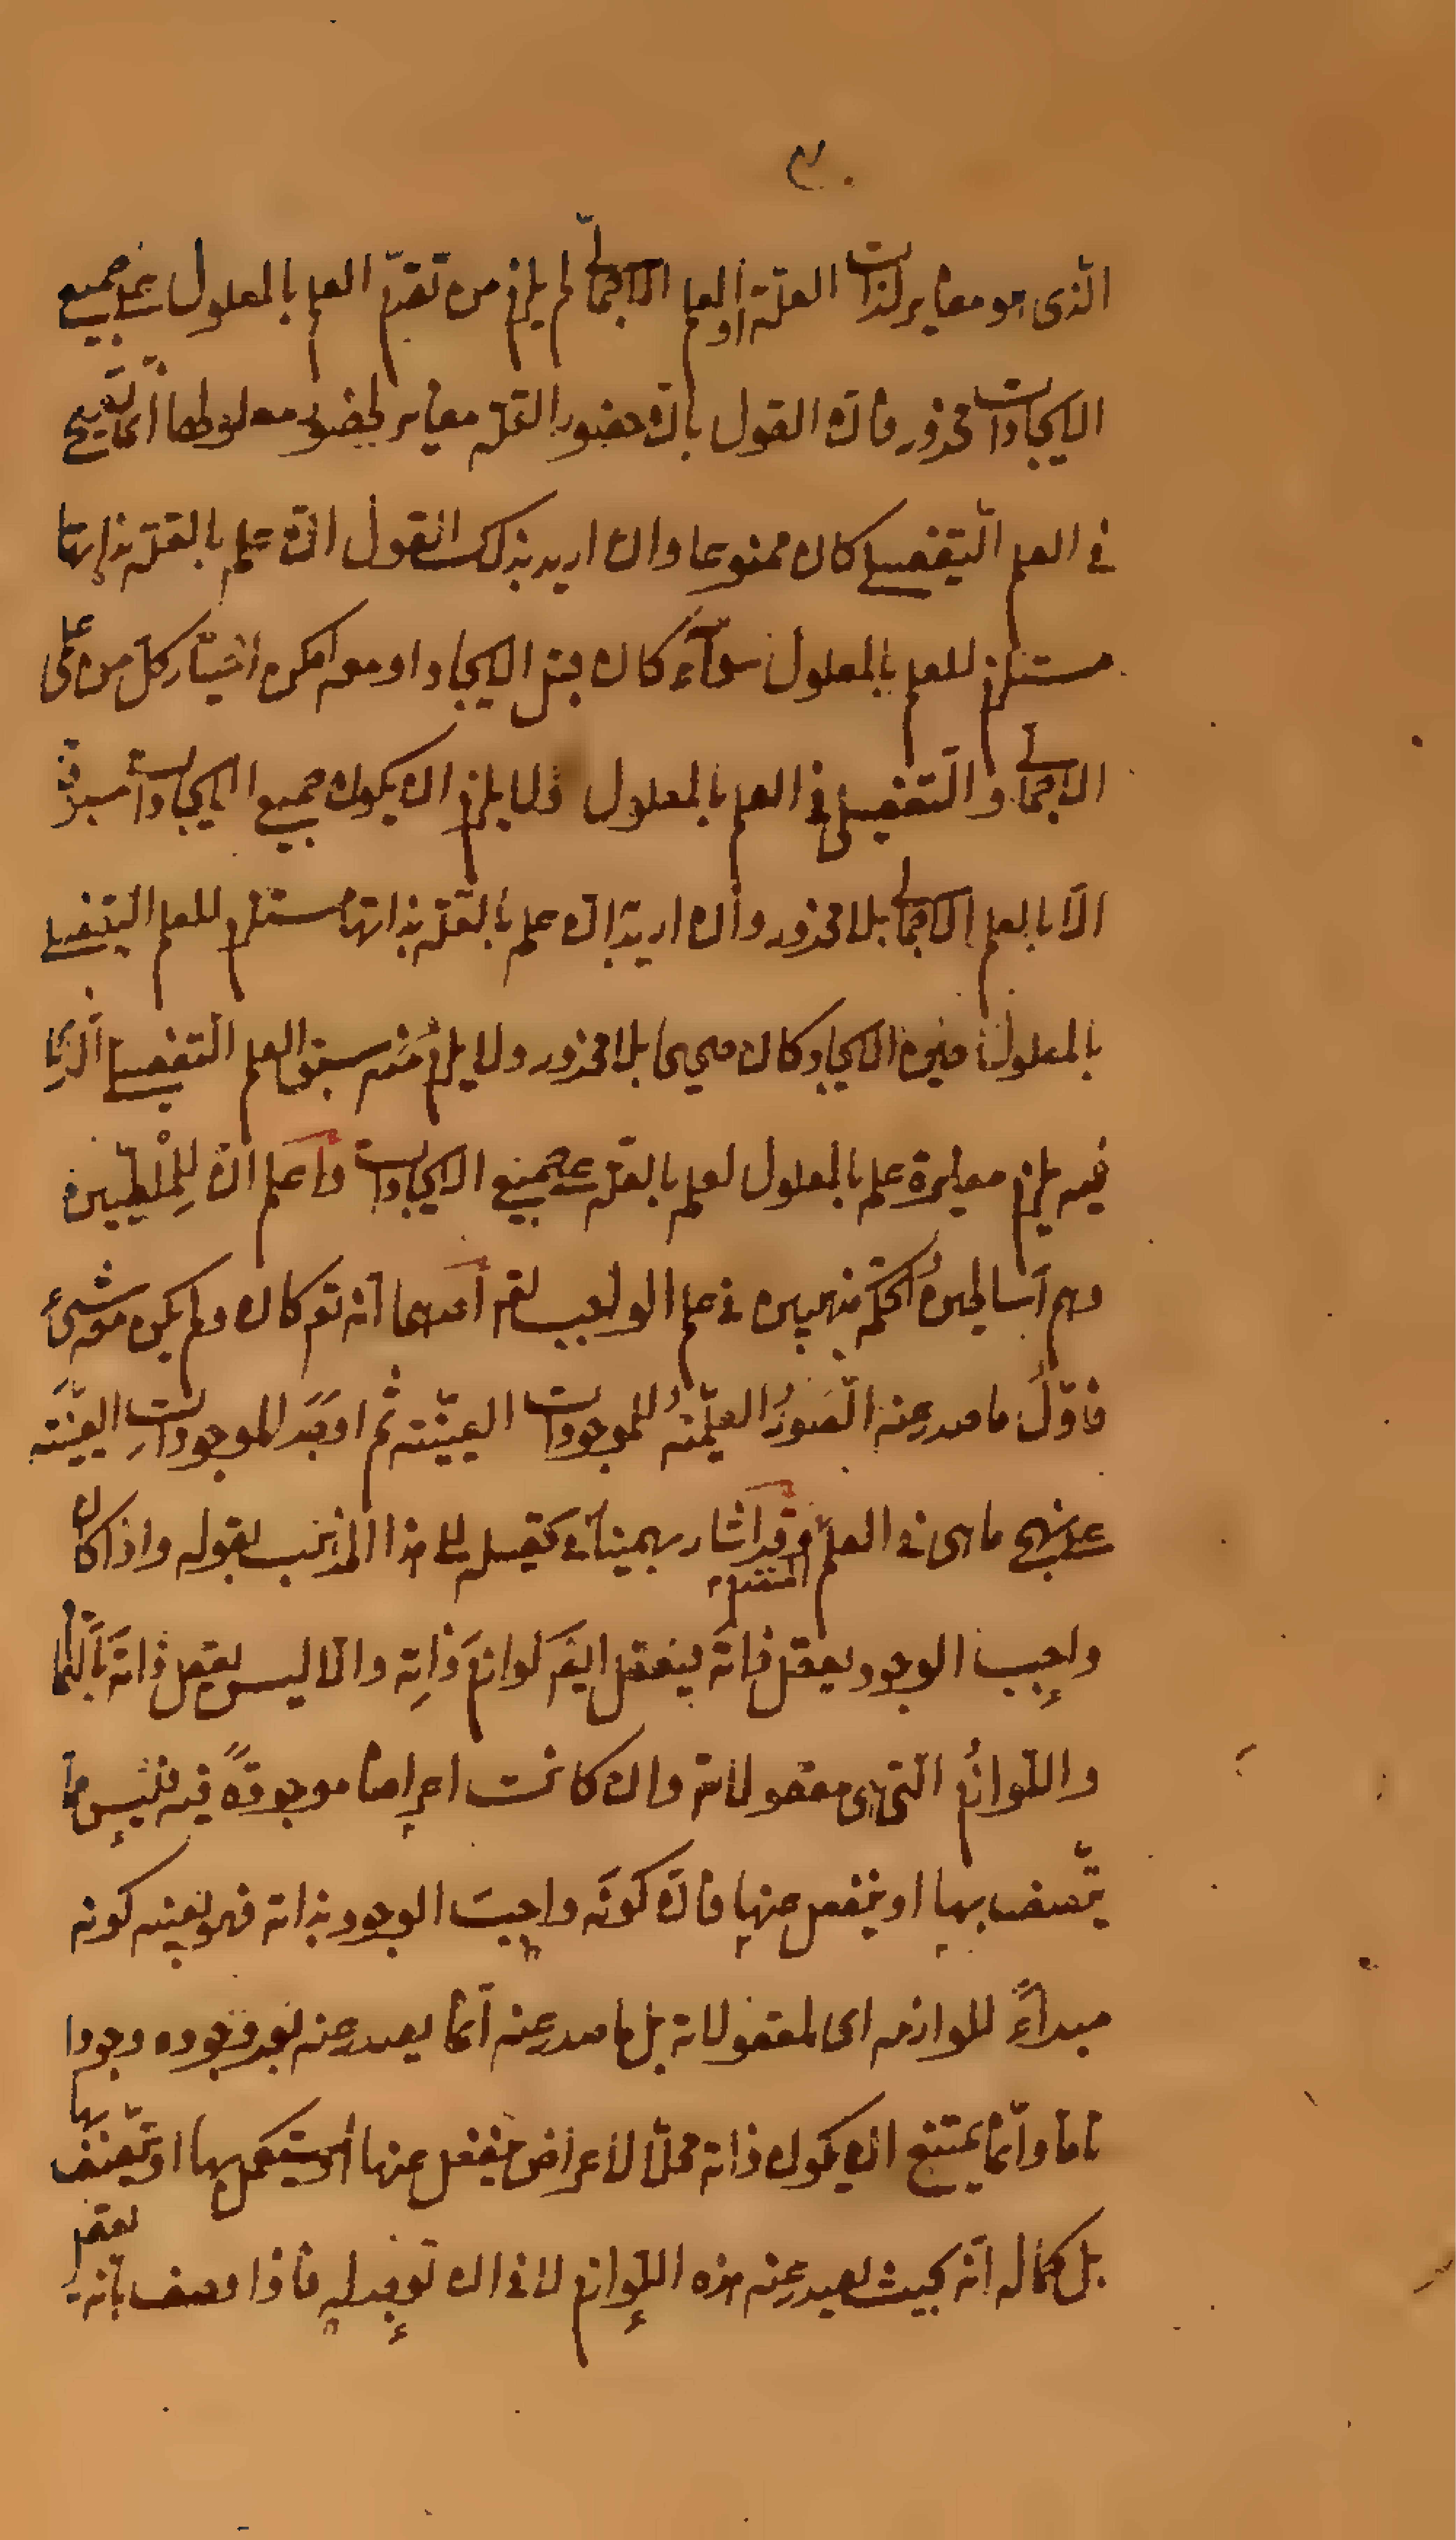 ٣٠
الذى هو مغاير لذات العلة او العلم الاجمالى لم يلزم من تقدم العلم بالمعلول على جميع
الايجادات محذور فان القول بان حضور العلة مغاير لحضور معلولها انما يصح
فى العلم التفصيلى كان ممنوعا وان اريد بذلك القول ان علم العلة بذاتها
مستلزم للعلم بالمعلول سوآء كان قبل الايجاد او معه امكن اختيار كل من
الاجمالى والتفصيلى فى العلم بالمعلول ولا يلزم ان يكون جميع الايجادات مسبوقة
الا بالعلم الاجمالى بلا محذور وان اريد ان علم العلة بذاتها مستلزم للعلم التفصيلى
بالمعلول حين الايجاد كان صحيحا بلا محذور ولا يلزم منه سبق العلم التفصيلى الذى
فيه يلزم مغايرة علم بالمعلول لعلم بالعلة على جميع الايجادات واعلم ان للملطيين
وهم اساطين الحكمة مذهبين فى علم الواجب تعم احدهما انه تع كان ولم يكن معه شئ
فاول ما صدر عنه الصور العلمية للموجودات العينية ثم اوجد الموجودات العينية
على نهج ما هى فى العلم المتقدم وقد اشار بهمنيار فى تحصيله الى هذا المذهب بقوله واذا كان
واجب الوجود يعقل ذاته فيعقل ايضا لوازم ذاته والا ليس يعقل ذاته بالتمام
واللوازم التى هى معقولاته وان كانت اعراضا موجودة فيه فليس مما
يتصف بها او ينفعل عنها فان كونه واجب الوجود بذاته فهو بعينه كونه
مبدأ للوازمه اى لمعقولاته بل ما صدر عنه انما يصدر عنه بعد وجوده وجودا
تاما وانما يمتنع ان يكون ذاته محلا لاعراض ينفعل عنها او يستكمل بها او يتصف بها
بل كماله انه بحيث يصدر عنه هذه اللوازم لا فى ان توجد له فاذا وصف بانه يعقل